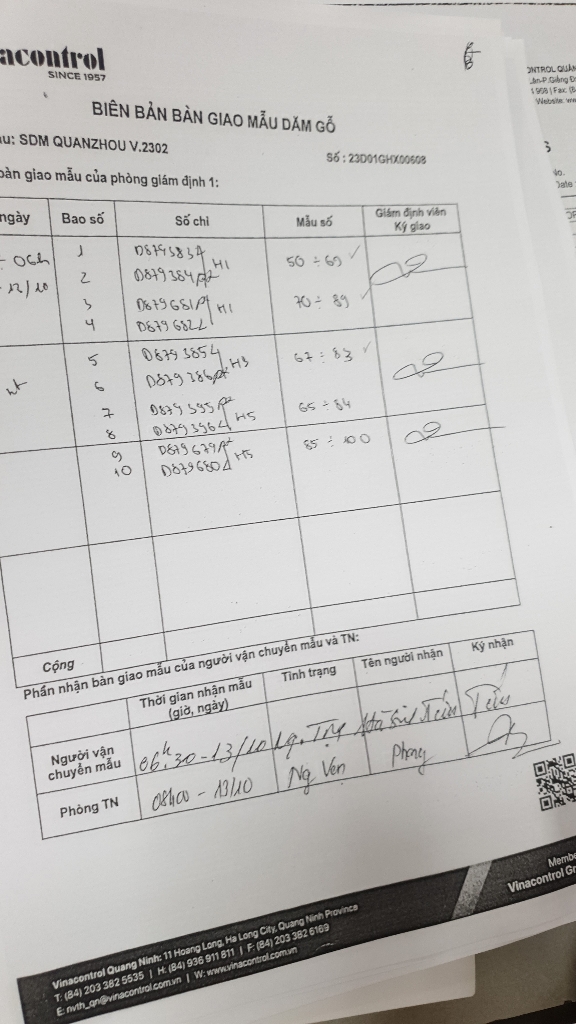 acontrol
SINCE 1957
BIÊN BẢN BÀN GIAO MẪU DĂM GỖ
u: SDM QUANZHOU V.2302
Số : 23D01GHX00608
bàn giao mẫu của phòng giám định 1:
ngày Bao số Số chì Mẫu số Giám định viên
Ký giao
06h 1 D879383 H1 50 ÷ 69 ✓
12/10 2 D879384
3 D879681 H1 70 ÷ 89 ✓
4 D879682
5 D879385 H3 67 ÷ 83 ✓
6 D879386
7 D879395 H5 65 ÷ 84
8 D879396
9 D879679 H5 85 ÷ 100
10 D879680
Cộng
Phần nhận bàn giao mẫu của người vận chuyển mẫu và TN:
Thời gian nhận mẫu
(giờ, ngày) Tình trạng Tên người nhận Ký nhận
Người vận
chuyển mẫu 06h.30 - 13/10 Ng.
Phòng TN 08h00 - 13/10 Ng Vẹn Phong
Membe
Vinacontrol Gr
Vinacontrol Quảng Ninh: 11 Hoang Long, Ha Long City, Quang Ninh Province
T: (84) 203 382 5535 | H: (84) 936 911 811 | F: (84) 203 382 6169
E: nvth_qn@vinacontrol.com.vn | W: www.vinacontrol.com.vn
ONTROL QUẢN
1 958 | Fax: (8
Website: ww
No.
Date